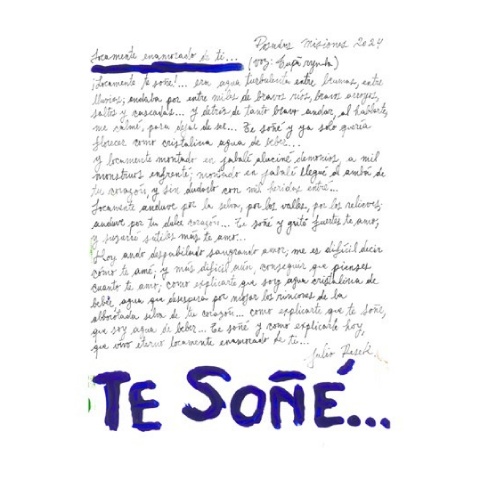 Posadas Misiones 2024
Locamente enamorado de ti...
¡Locamente te soñé!... era agua turbulenta entre brumas, entre
lluvias; andaba por entre miles de bravos ríos, bravos arroyos,
saltos y cascadas... y detrás de tanto bravo andar, al hablarte,
me calmé, para dejar de ser... Te soñé y ya solo quería
florecer como cristalina agua de beber...
Y locamente montado en jabalí aluciné demonios, a mil
monstruos enfrenté; montado en jabalí llegué al de
tu corazón, y sin dudarlo con mil heridas entré...
Locamente anduve por la selva, por los valles, por los relieves;
anduve por tu dulce corazón... Te soñé y grité fuertes te amo,
y susurré sutiles más te amo...
Hoy ando despabilado sangrando amor, me es difícil decir
cómo te amé; y más difícil aún, conseguir que pienses
cuanto te amo; como explicarte que soy agua cristalina de
beber, agua que desespera por mojar los rincones de la
alborotada selva de tu corazón... como explicarte que te soñé,
que soy agua de beber... Te soñé y como explicarle hoy,
que vivo eterno locamente enamorado de ti...
Julio
TE SOÑÉ...